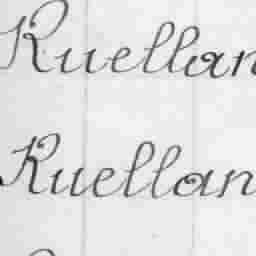 Ruellan
Ruellan